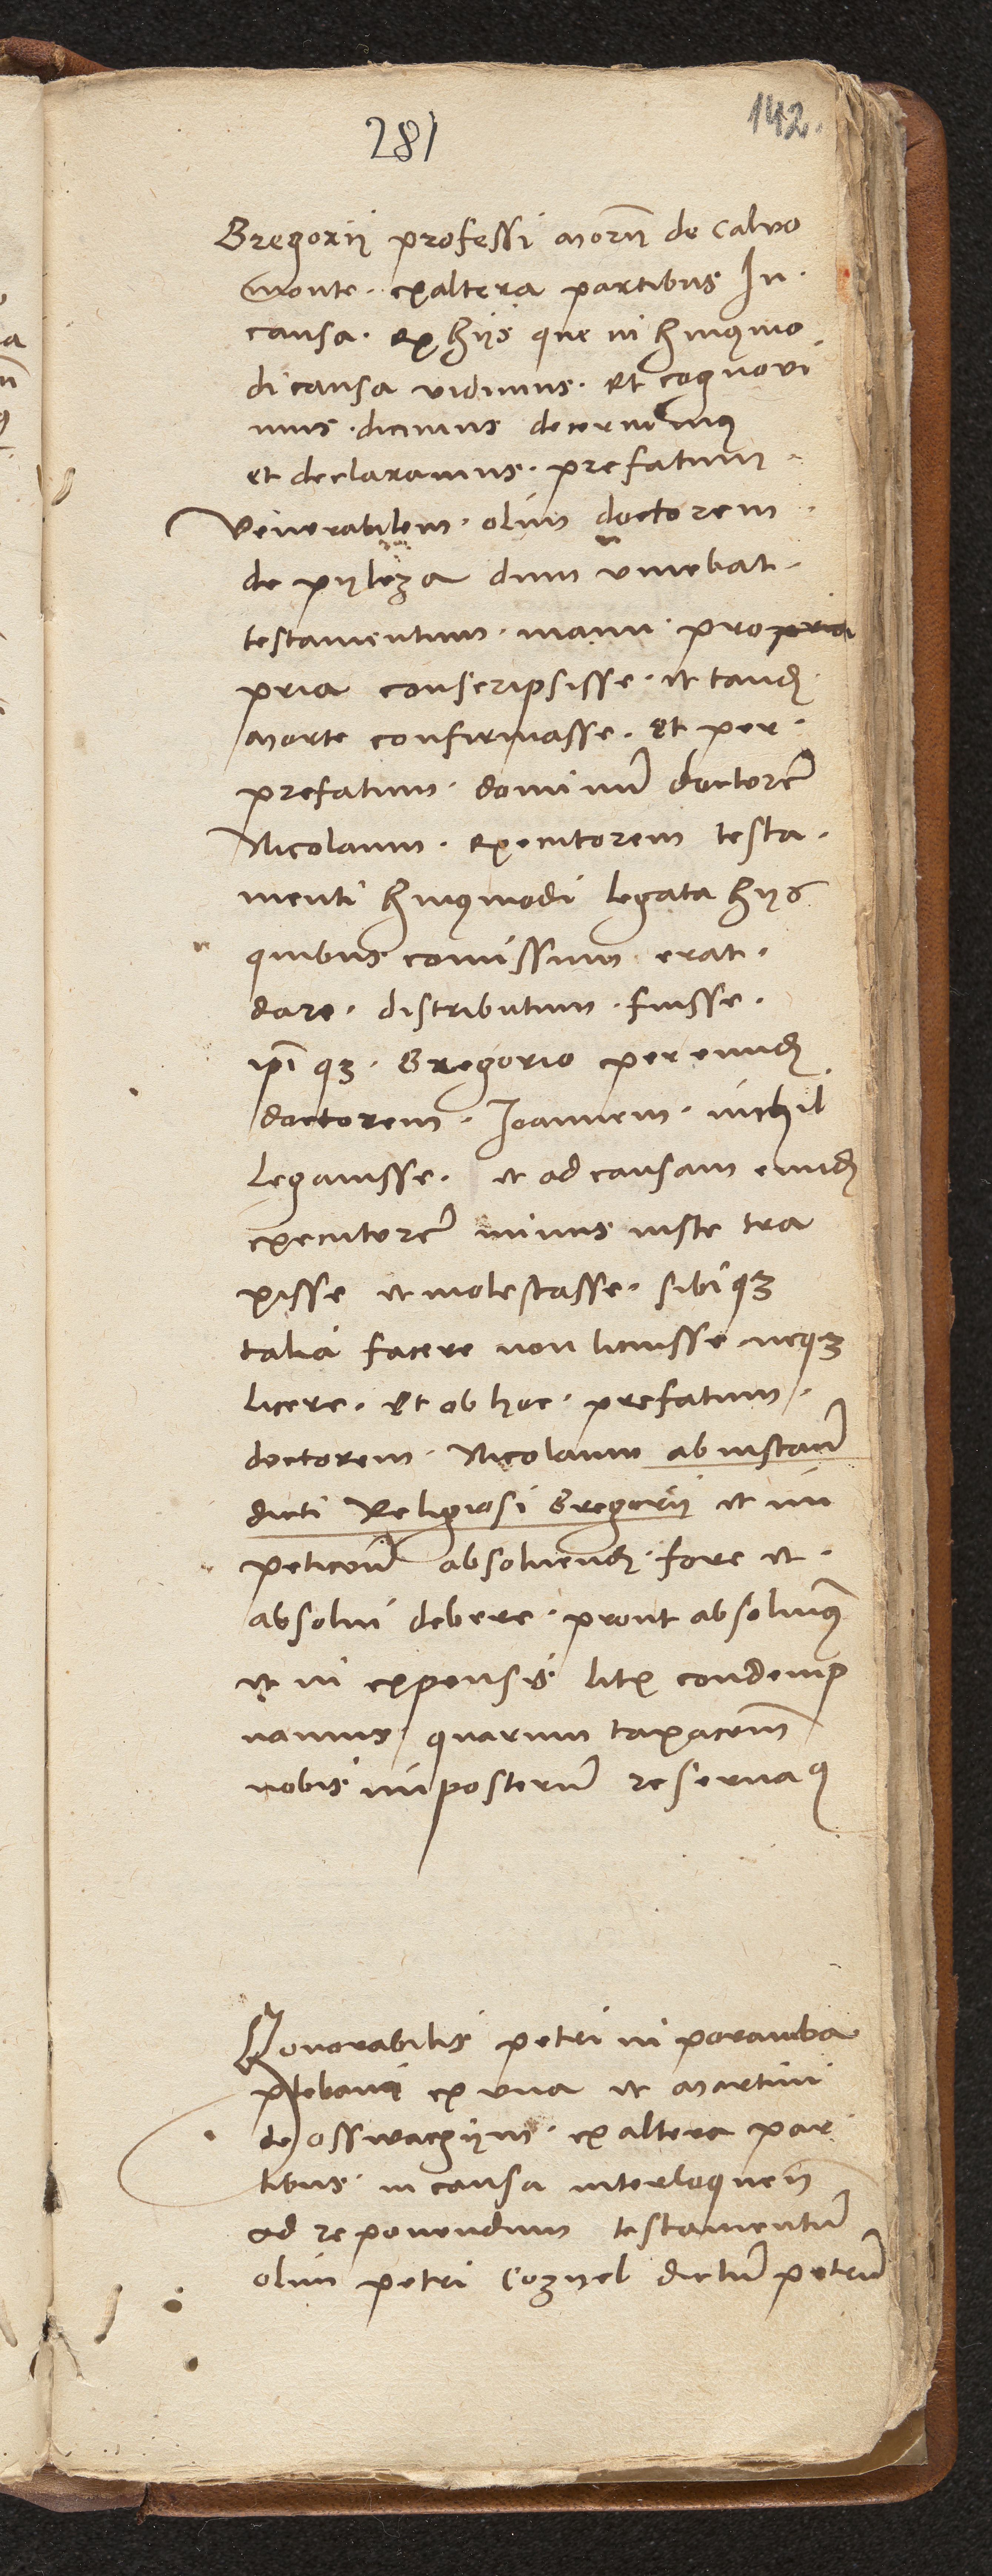 281
142.
Gregorii professi monrii de Calvo
monte. exaltera partibus In.
causa. ex hijs que in huiusmo
di causa vidimus. et cognovi
mus. dicimus decernimus
et declaramus. prefatum.
Venerabilem. olim doctorem
de pylcza dum vivebat.
testamentum. manu. propria
pria conscripsisse. et tandem
morte confirmasse. Et per.
prefatum. dominum doctorem
Nicolaum. executorem testa.
menti huiusmodi legata hijs
quibus comissum erat.
dare. distributum. fuisse.
ipsique. Gregorio per eundem
doctorem. Joannem. nichil
legavisse. et ad causam eundem
executorem minus iuste tra
xisse et molestasse. sibique
talia facere non licuisse neque
licere. Et ob hoc. prefatum.
doctorem. Nicolaum ab instancia
dicti Religiosi Gregorii et im
peticione absolvendum. fore et.
absolvi debere. prout absolvimus
et in expensis litis condemp
namus. quarum taxacionem
nobis imposterum reservamus
Honorabilis petri in poramba
plebani ex una et martini
de osswaczym. ex altera par
tibus. in causa interloquendo
ad reponendum testamentum
olim petri Cozyel dictum petrum